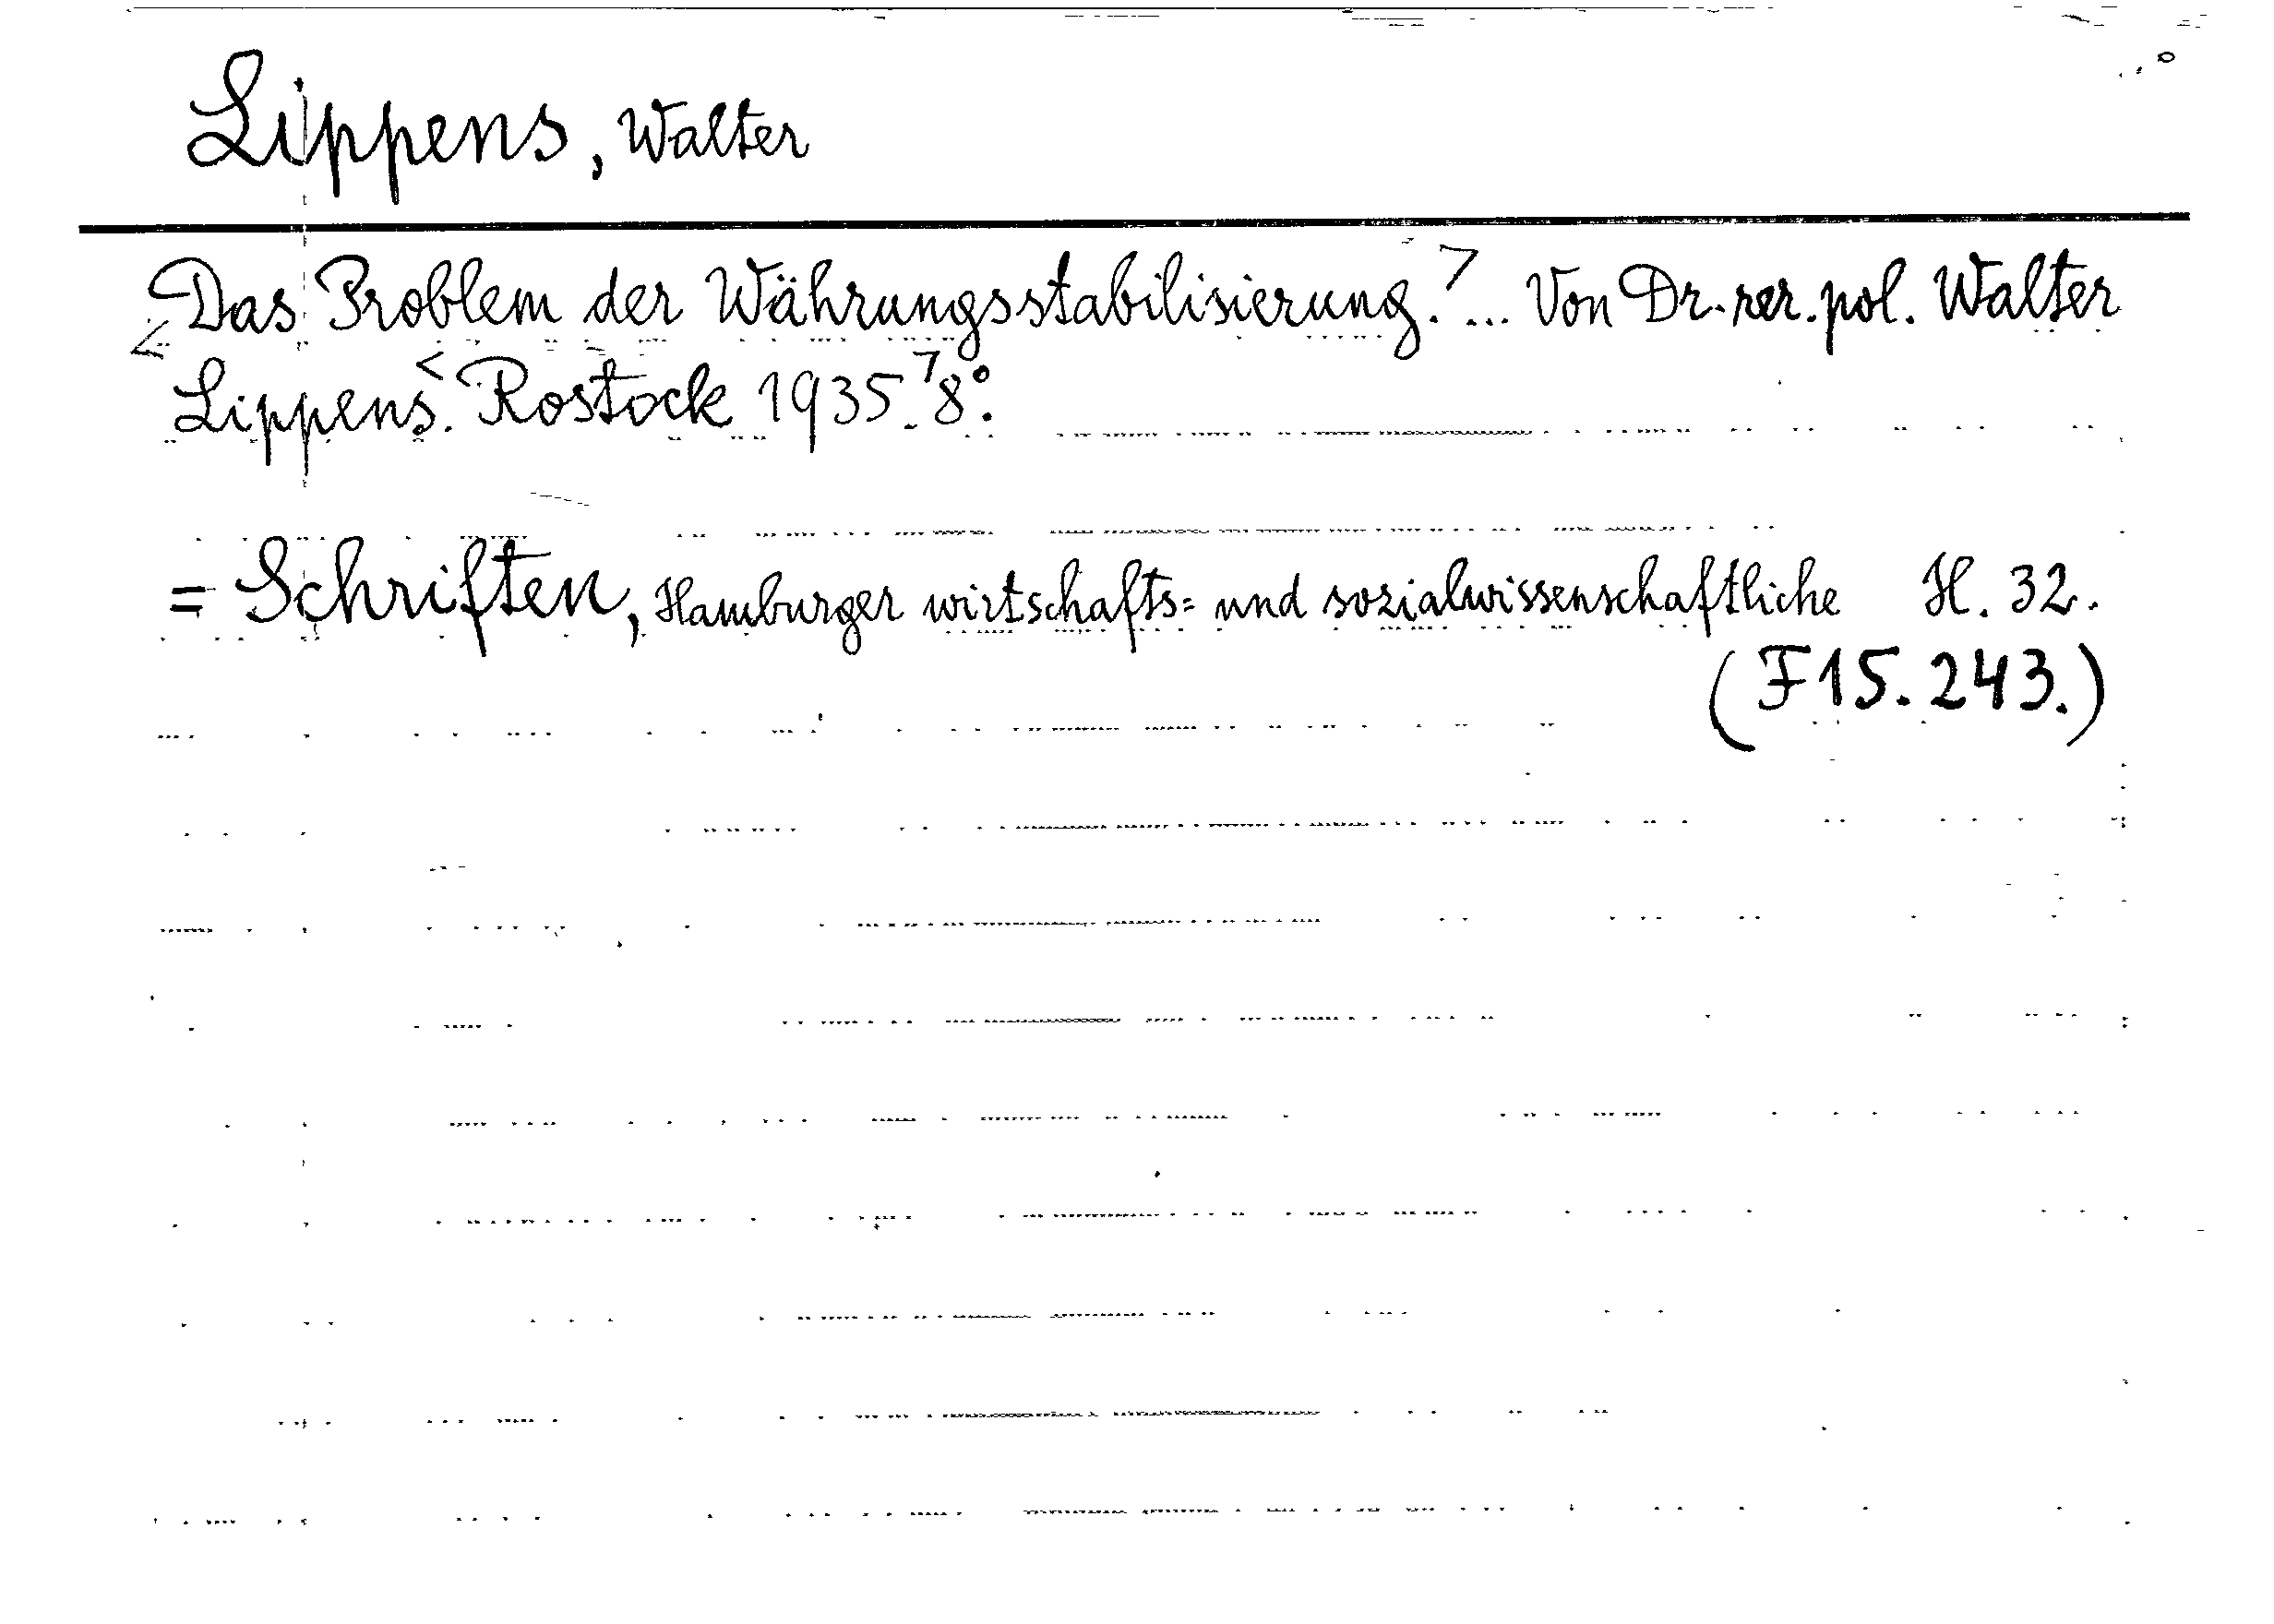 Lippens, Walter
Das Problem der Währungsstabilisierung. ... Von Dr. rer. pol. Walter
Lippens. Rostock 1935. 8°.
= Schriften, Hamburger wirtschafts= und sozialwissenschaftliche H. 32.
(F 15. 243.)